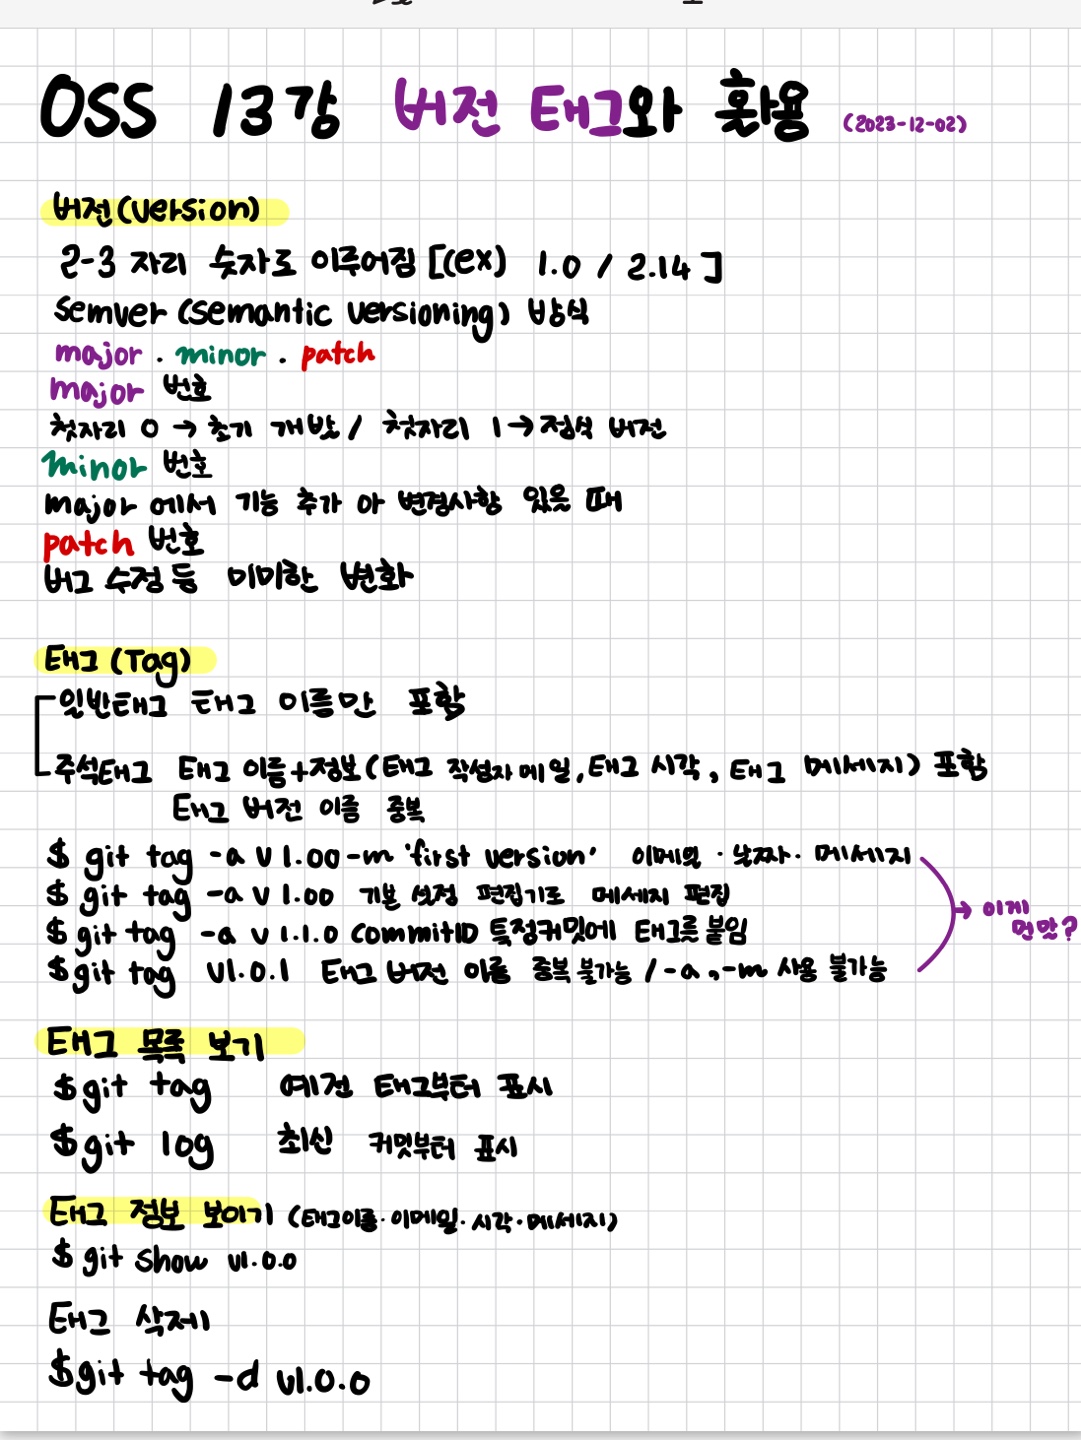 OSS 13강 버전 태그와 활용 (2023-12-02)
버전(version)
2-3 자리 숫자로 이루어짐 [(ex) 1.0 / 2.14 ]
semver (semantic versioning) 방식
major . minor . patch
major 번호
첫자리 0 → 초기 개발 / 첫자리 1 → 정식 버전
minor 번호
major 에서 기능 추가 아 변경사항 있을 때
patch 번호
버그 수정 등 미미한 변화
태그 (Tag)
일반태그 태그 이름만 포함
주석태그 태그 이름+정보(태그 작성자 메일, 태그 시각, 태그 메세지) 포함
태그 버전 이름 중복
$ git tag -a v 1.00 -m 'first version' 이메일 · 날짜 · 메세지
$ git tag -a v 1.00 기본 설정 편집기로 메세지 편집
$ git tag -a v 1.1.0 commitID 특정커밋에 태그를 붙임
$ git tag v1.0.1 태그 버전 이름 중복 불가능 / -a, -m 사용 불가능
→ 이게
먼맛?
태그 목록 보기
$ git tag 예전 태그부터 표시
$ git log 최신 커밋부터 표시
태그 정보 보이기 (태그이름·이메일·시각·메세지)
$ git show v1.0.0
태그 삭제
$ git tag -d v1.0.0